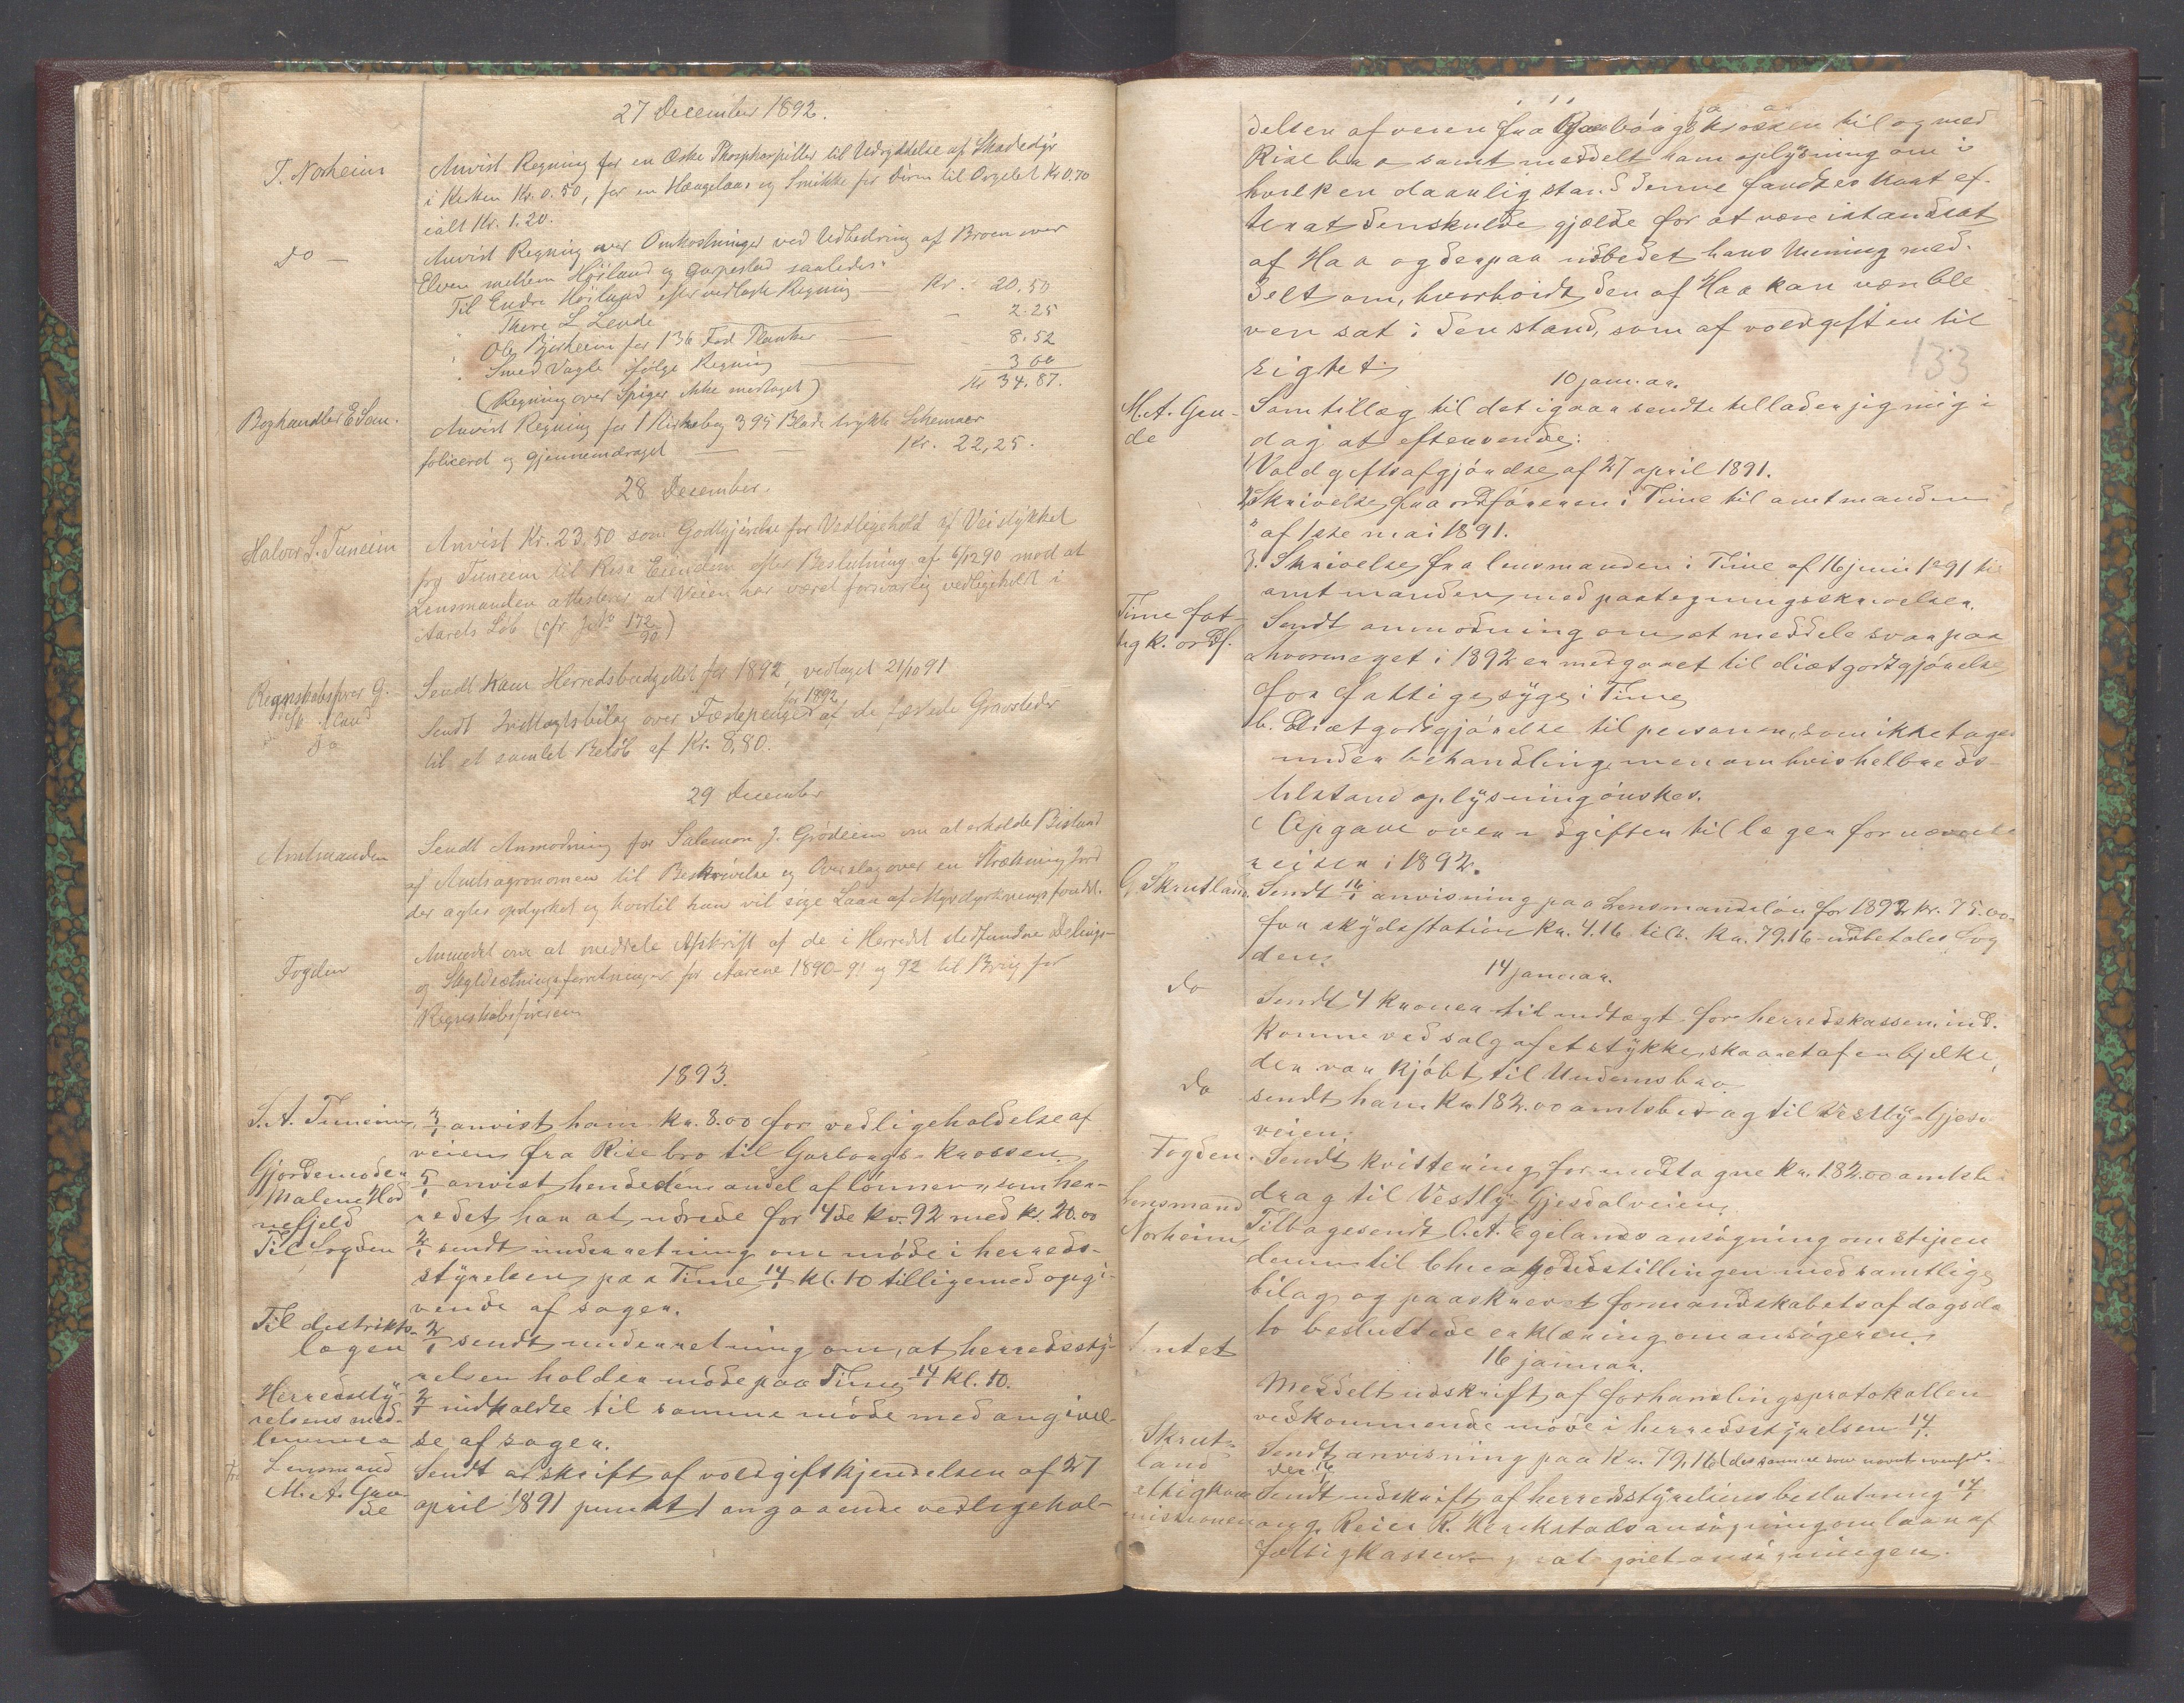 27 December 1892.
T. Norheim
Anvist Regning for en Æske Phosphorpiller til Udryddelse af Skadedyr
i Kirken Kr. 0.50, for en Hængelaas og Smikke for Døren til Orgelet Kr 0.70
ialt Kr. 1.20.
Do —
Anvist Regning over Omkostninger ved Udbedring af Broen over
Elven mellem Høiland og Garpestad saaledes:
Til Endre Høiland efter vedlagte Regning — Kr. 20.50
" Thore L Lende — 2.25
" Ole Bjerkeim for 136 Fod Planker — 8.52
" Smed Vagle ifølge Regning — 3 60
(Regning over Spiger ikke modtaget) Kr 34.87.
Boghandler E Søm.
Anvist Regning for 1 Kirkebog 395 Blade trykte Schemaer
folieret og gjennemdraget — — Kr. 22,25.
28 December.
Halvor L. Tuneim
Anvist Kr. 23.50 som Godtgjørelse for Vedligehold af Veistykket
fra Tuneim til Risa Eiendom efter Beslutning af 6/12 90 mod at
Lensmanden attesterer at Veien har været forsvarlig vedligeholdt i
Aarets Løb (cfr. J No 172/90)
Regnskabsfører G.
Sendt ham Herredsbudgettet for 1892, vedtaget 21/10 91
Do
Sendt Indtægtsbilag over Fæstepenge for 1892 af de fæstede Gravsteder
til et samlet Beløb af Kr. 8,80.
29 December
Amtmanden
Sendt Anmodning fra Salemon J. Grødeim om at erholde Bistand
af Amtsagronomen til Beskrivelse og Overslag over en Strækning Jord
der agtes opdyrket og hvortil han vil søge Laan af Myrdyrkningsfondet.
Fogden
Anmodet om at meddele Afskrift af de i Herredet stedfundne Delings-
og Skyldsætningsforretninger for Aarene 1890-91 og 92 til Brug for
Regnskabsføreren
1893.
S. A. Tuneim
3/1 anvist ham Kr. 8.00 for vedligeholdelse af
veien fra Rise bro til Garborgs-krossen.
Gjordemoder
Malene Hog
nefjeld
5/1 anvist hende den andel af lønnen, som her-
redet har at udrede for 4de Kv. 92 med kr. 20.00
Til fogden
2/1 sendt underretning om møde i herreds-
styrelsen paa Time 14/1 kl. 10 tilligemed opgi-
vende af sager.
Til distrikts-
lægen
2/1 sendt underretning om, at herredssty-
relsen holder møde paa Time 14/1 kl. 10.
Herredssty-
relsens med-
lemmer
2/1 indkaldte til samme møde med angivel-
se af sager.
Lensmand
M. A. Grau-
de
Sendt afskrift af voldgiftskjendelsen af 27
april 1891 punkt 1 angaaende vedligehol-
delsen af veien fra Garborgskrossen til og med
Rise bro samt meddelt ham oplysning om i
hvilken daarlig stand denne fandtes snart ef-
ter at den skulde gjælde for at være istandsat
af Haa og derpaa udbedet hans mening med-
delt om, hvorvidt den af Haa kan være ble
ven sat i den stand, som af voldgiften til
sigtet.
133
10 januar.
M. A. Grau-
de
Som tillæg til det igaar sendte tillader jeg mig i
dag at eftersende:
1 Voldgiftsafgjørelse af 27 april 1891.
2 Skrivelse fra ordføreren i Time til amtmanden
" af 1ste mai 1891.
3. Skrivelse fra lensmanden i Time af 16 juni 1891 til
amtmanden med paategningsskrivelser.
Time fat-
tigk. ordf.
Sendt anmodning om at meddele svar paa
a hvormeget i 1892 er medgaaet til diætgodtgjørelse
for fattige syge i Time
b. Diætgodtgjørelse til personer, som ikke toges
under behandling, men om hvis helbreds-
tilstand oplysning ønskes.
c Opgave over udgiften til læger for nævnte
reiser i 1892.
G. Skrutland.
Sendt 16/1 anvisning paa Lensmandsløn for 1892 kr. 75.00
for skydsstation Kr. 4.16 tils. Kr. 79.16 udbetales Fog
den.
14 januar.
do
Sendt 4 kroner til indtægt for herredskassen ind-
komne ved salg af et stykke, skaaret af en bjelke,
der var kjøbt til Undems bro
do
sendt ham Kr. 182.00 amtsbidrag til Vestly-Gjesd
veien.
Fogden.
Sendt kvittering for modtagne Kr. 182.00 amtsbi
drag til Vestly-Gjesdalveien.
Lensmand
Norheim
Tilbagesendt O. A. Egelands ansøgning om stipen
dium til med samtlige
bilag og paaskrevet formandskabets af dagsda
to besluttede erklæring om ansøgeren.
16 januar.
Meddelt udskrift af forhandlingsprotokollen
vedkommende møde i herredsstyrelsen 14/1.
Skrut-
land
Sendt anvisning paa Kr. 79,16 (den samme som nævnt ovenfor
den 16/1
Sendt udskrift af herredsstyrelsens beslutning 14/1
missionen
ang. Reier R. ansøgning om laan af
fattigkassen ansøgningen.